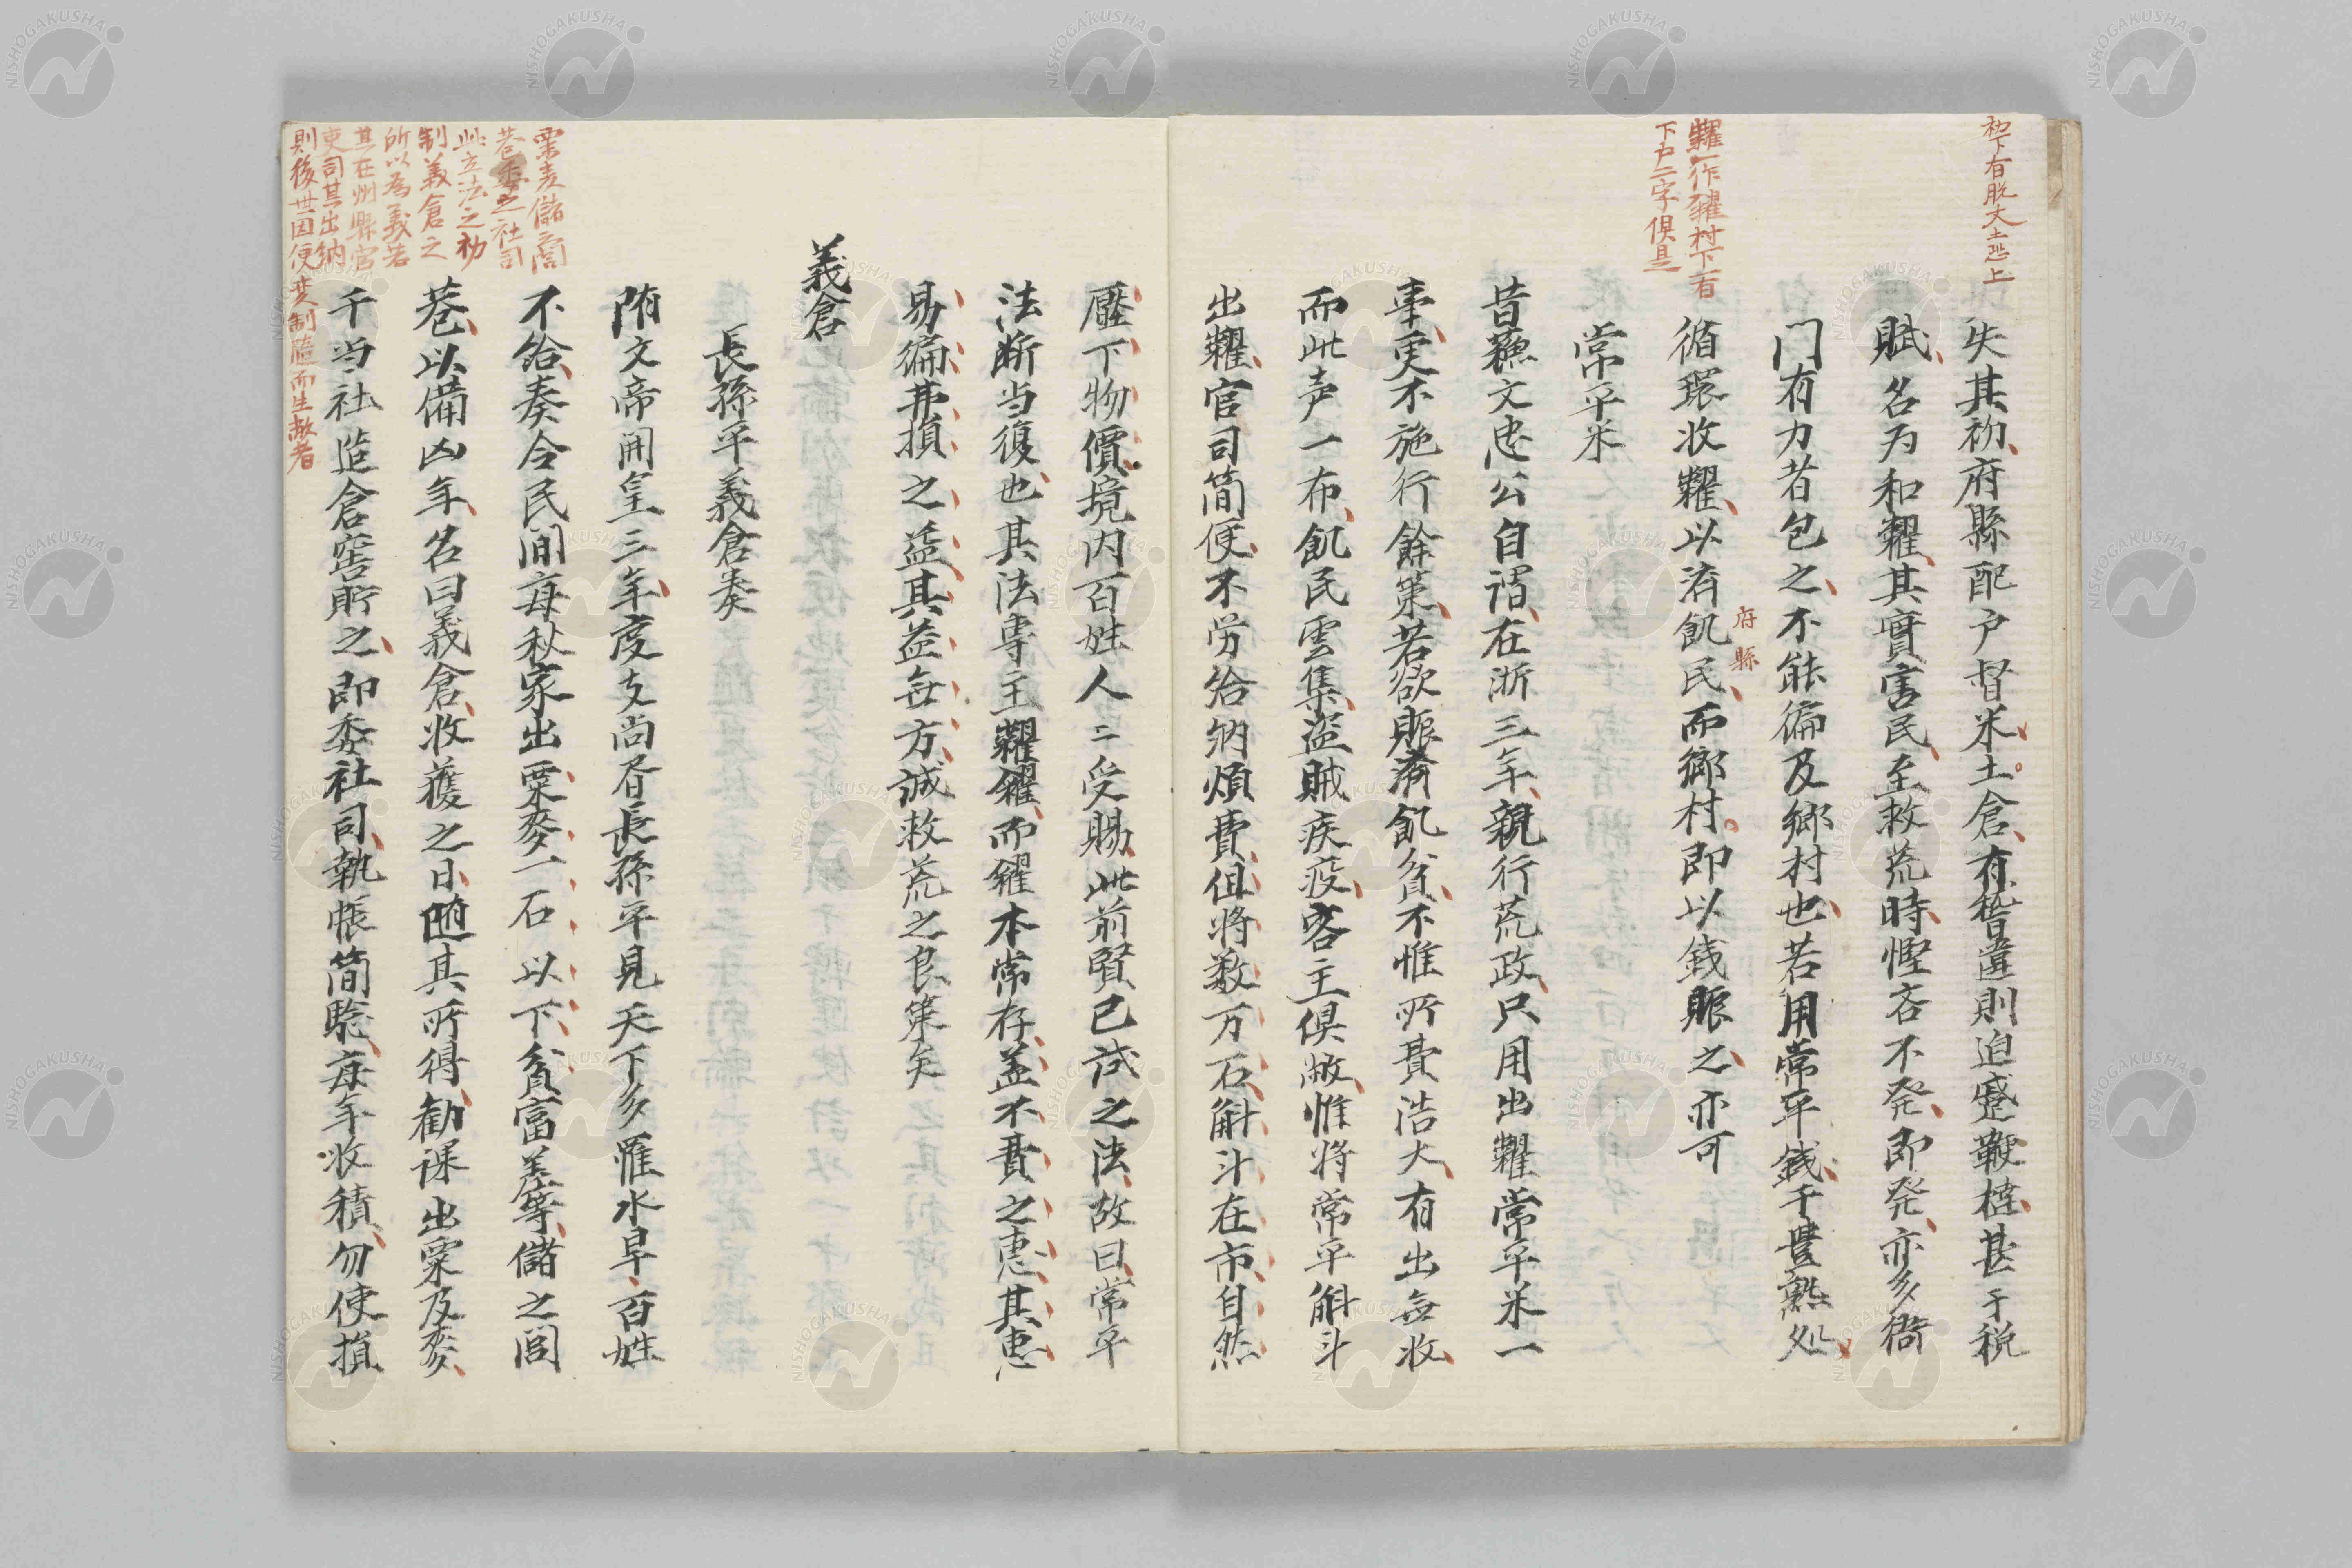 初下有脱大土恐上
失其初府縣配户督米土倉有稽違則迫蹙鞭撻甚于税
賦名为和糴其實害民至救荒時慳吝不発即発亦多衙
门有力者包之不能徧及鄉村也若用常平銭于豊熟处
府縣
循環收糴以済飢民而鄉村即以銭賑之亦可
糴一作糶村下有
下户二字俱是
常平米
昔蘓文忠公自謂在浙三年親行荒政只用出糶常平米一
事更不施行餘策若欲賑済飢貧不惟所費浩大有出無收
而此声一布飢民雲集盗賊疾疫客主俱敝惟将常平斛斗
出糶官司简便不労给納煩費但将数万石斛斗在市自然
壓下物價境内百姓人二受賜此前賢已試之法故曰常平
法断当復也其法専主糶糴而糴本常存盖不費之惠其惠
易徧弗損之益其益無方誠救荒之良策矣
義倉
長孫平義倉奏
隋文帝開皇三年度支尚昏長孫平見天下多罹水旱百姓
不给奏令民间每秋家出粟麥一石以下貧富差等儲之閭
巷以備凶年名曰義倉收獲之日隨其所得勧課出粟及麥
于当社造倉窖貯之即委社司執帳简驗每年收積勿使損
粟麦儲之閭
巷委之社司
此立法之初
制義倉之
所以為義若
其在州縣官
吏司其出納
則後世因便変制隨而生敝者
NISHOGAKUSHA